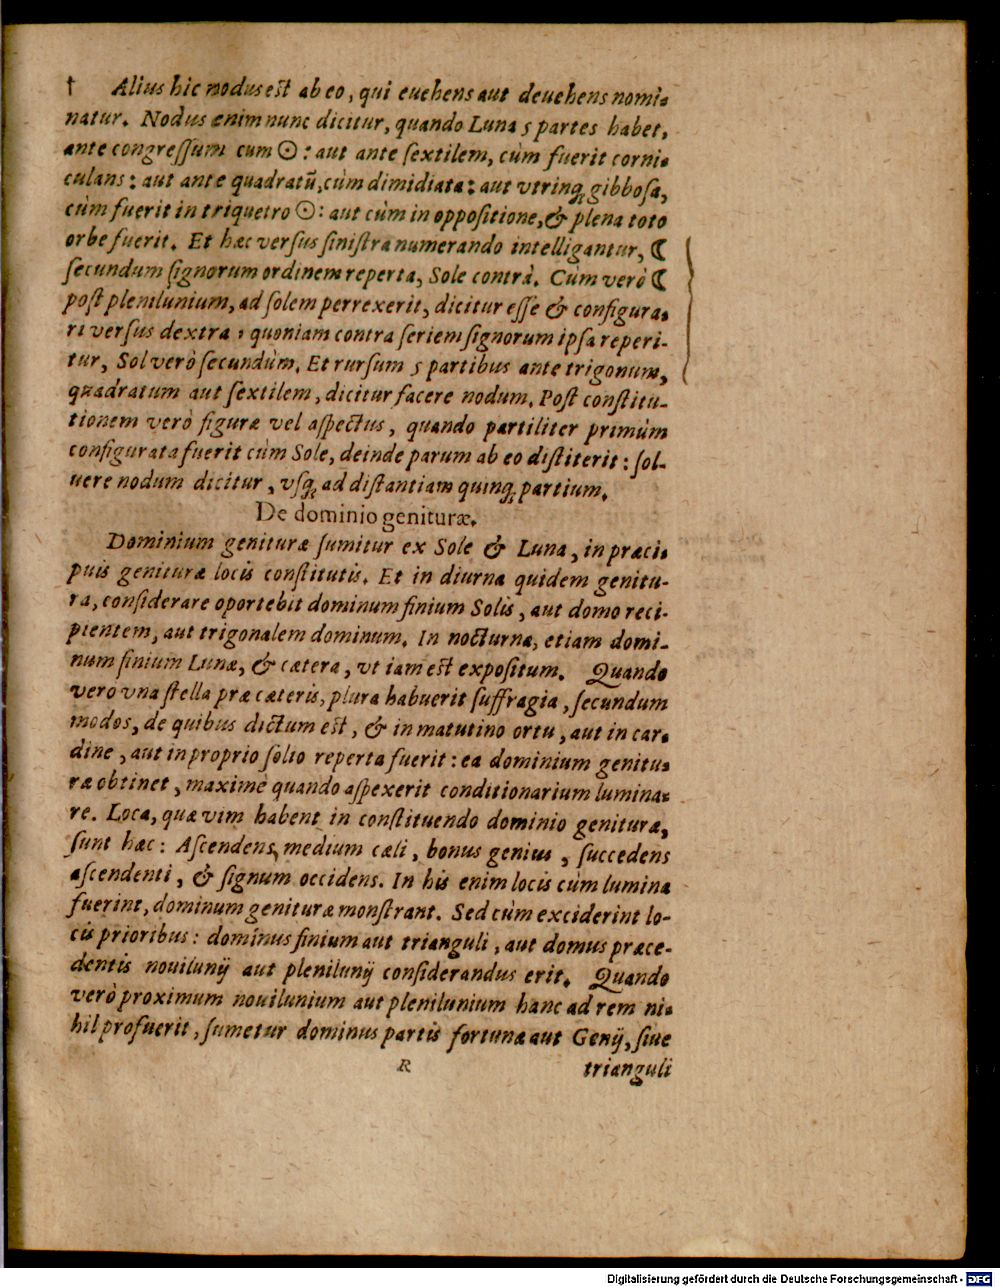 † Alius hic nodus est ab eo, qui euehens aut deuehens nomi-
natur. Nodus enim nunc dicitur, quando Luna 5 partes habet,
ante congreſſum cum ☉: aut ante ſextilem, cùm fuerit corni-
culans: aut ante quadratū, cùm dimidiata: aut vtrinq; gibboſa,
cùm fuerit in triquetro ☉: aut cùm in oppoſitione, & plena toto
orbe fuerit. Et hæc verſus ſiniſtra numerando intelligantur, ☾
ſecundum ſignorum ordinem reperta, Sole contrà. Cùm verò ☾
poſt plenilunium, ad ſolem perrexerit, dicitur eſſe & configura-
ri verſus dextra: quoniam contra ſeriem ſignorum ipſa reperi-
tur, Sol verò ſecundùm. Et rurſum 5 partibus ante trigonum,
quadratum aut ſextilem, dicitur facere nodum. Poſt conſtitu-
tionem verò figuræ vel aſpectus, quando partiliter primùm
configurata fuerit cùm Sole, deinde parum ab eo diſtiterit: ſol-
uere nodum dicitur, vſq; ad diſtantiam quinq; partium.
De dominio genituræ.
Dominium genituræ ſumitur ex Sole & Luna, in præci-
puis genituræ locis conſtitutis. Et in diurna quidem genitu-
ra, conſiderare oportebit dominum finium Solis, aut domo reci-
pientem, aut trigonalem dominum. In nocturna, etiam domi-
num finium Lunæ, & cætera, vt iam est expoſitum. Quando
vero vna ſtella præ cæteris, plura habuerit ſuffragia, ſecundum
modos, de quibus dictum est, & in matutino ortu, aut in car-
dine, aut in proprio ſolio reperta fuerit: ea dominium genitu-
ræ obtinet, maximè quando aſpexerit conditionarium lumina-
re. Loca, quæ vim habent in conſtituendo dominio genituræ,
ſunt hæc: Aſcendens, medium cæli, bonus genius, ſuccedens
aſcendenti, & ſignum occidens. In his enim locis cùm lumina
fuerint, dominum genituræ monſtrant. Sed cùm exciderint lo-
cis prioribus: dominus finium aut trianguli, aut domus præce-
dentis nouilunij aut plenilunij conſiderandus erit. Quando
verò proximum nouilunium aut plenilunium hanc ad rem ni-
hil profuerit, ſumetur dominus partis fortunæ aut Genij, ſiue
R trianguli
Digitalisierung gefördert durch die Deutsche Forschungsgemeinschaft - DFG